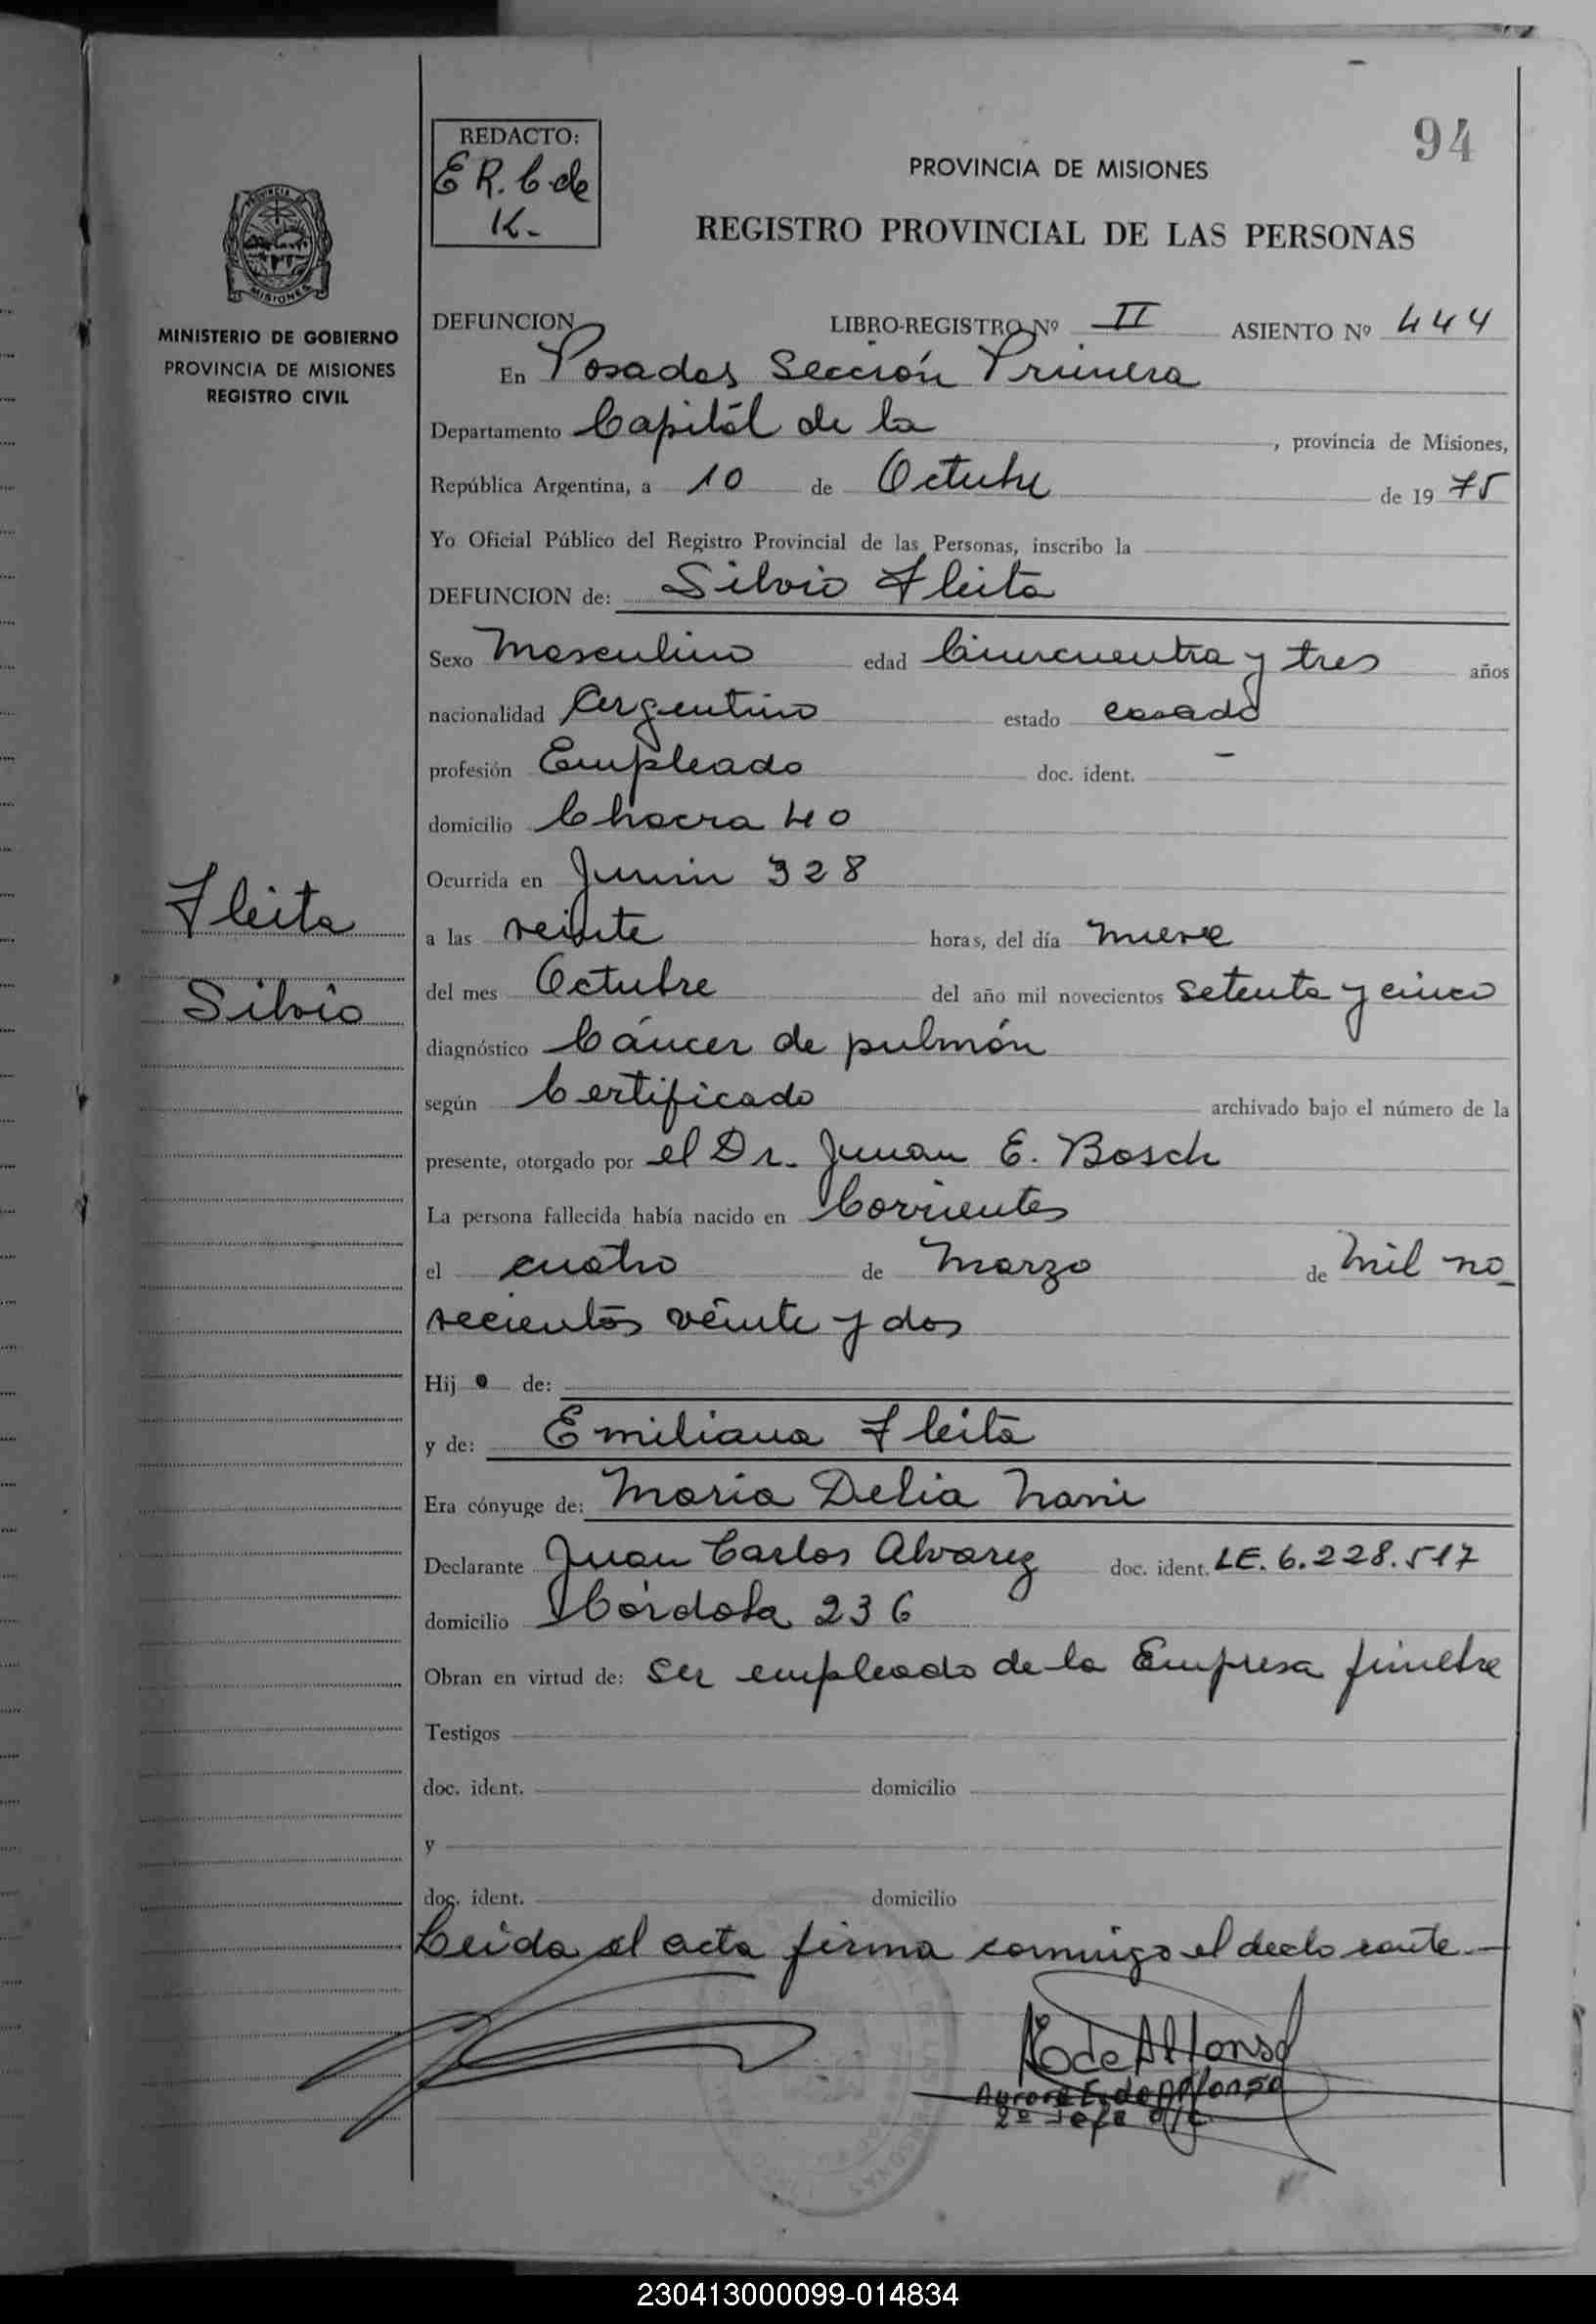 94
REDACTO:
E R. C. de
K.-
PROVINCIA DE MISIONES
REGISTRO PROVINCIAL DE LAS PERSONAS
PROVINCIA
MISIONES
MINISTERIO DE GOBIERNO
PROVINCIA DE MISIONES
REGISTRO CIVIL
DEFUNCION LIBRO-REGISTRO Nº II ASIENTO Nº 444
En Posadas Sección Primera
Departamento Capitál de la, provincia de Misiones,
República Argentina, a 10 de Octubre de 1975
Yo Oficial Público del Registro Provincial de las Personas, inscribo la
DEFUNCION de: Silvio Fleita
Sexo Masculino edad Cincuenta y tres años
nacionalidad Argentino estado casado
profesión Empleado doc. ident. -
domicilio Chacra 40
Ocurrida en Junin 328
Fleita
a las veinte horas, del día nueve
Silvio
del mes Octubre del año mil novecientos setenta y cinco
diagnóstico Cáncer de pulmón
según Certificado archivado bajo el número de la
presente, otorgado por el Dr. Juan E. Bosch
La persona fallecida había nacido en Corrientes
el cuatro de Marzo de Mil no_
vecientos veinte y dos
Hijo de:
y de: Emiliana Fleita
Era cónyuge de: Maria Delia
Declarante Juan Carlos Alvarez doc. ident. LE. 6.228.517
domicilio Córdoba 236
Obran en virtud de: ser empleado de la Empresa fúnebre
Testigos
doc. ident. domicilio
y
doc. ident. domicilio
Leida el acta firma conmigo el declarante.-
de Alfonso
Aurora E. de Alfonso
2º Jefe
230413000099-014834